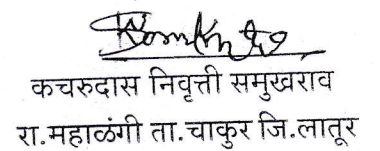 कचरुदास निवृत्ती समुखराव
रा.महाळंगी ता.चाकुर जि.लातूर